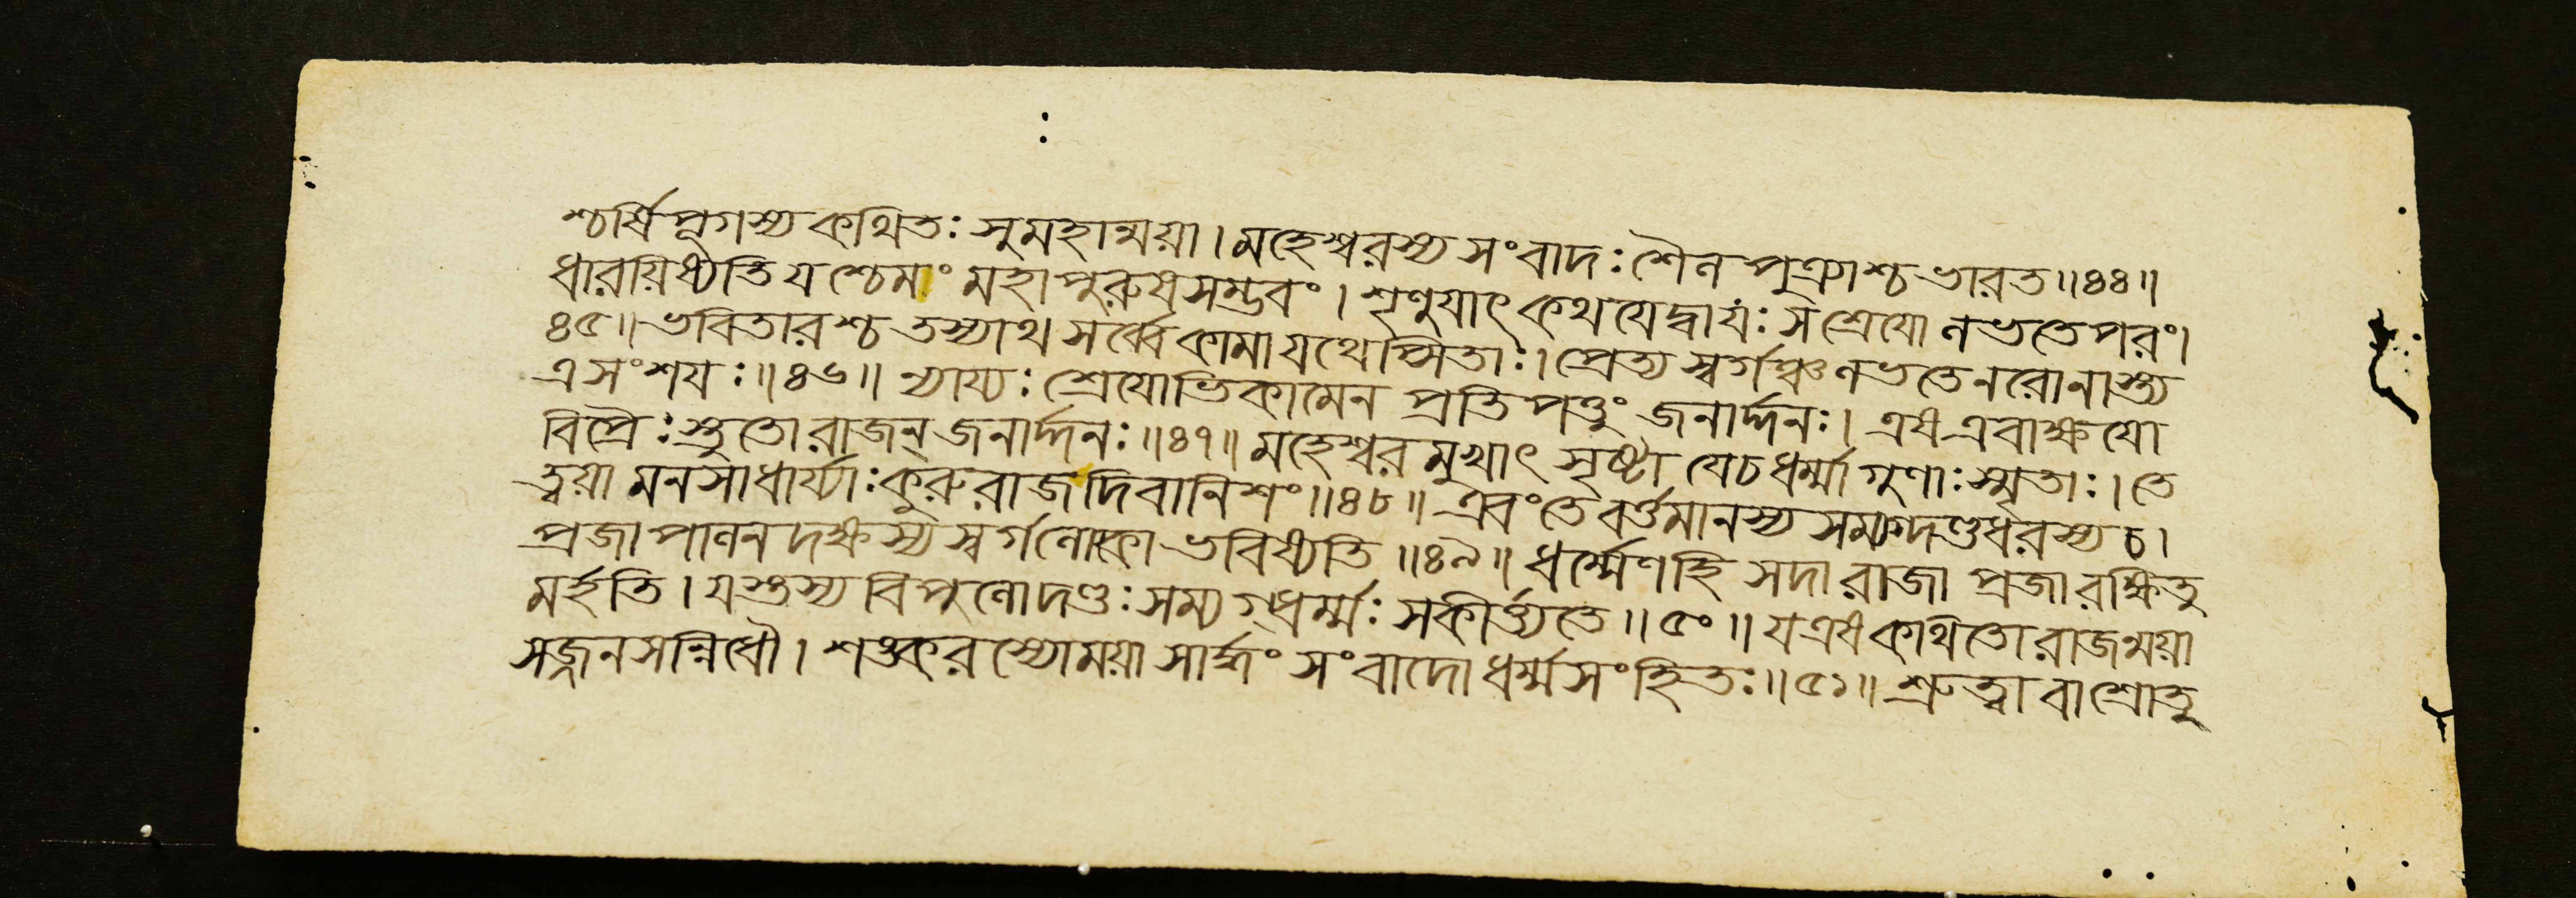 শ্চর্ষিপূগস্য কথিতঃ সুমহান্ময়া। মহেশ্বরস্য সংবাদঃ শৈলপুত্র্যাশ্চ ভারত॥৪৪॥
ধারয়িষ্যতি যশ্চেমাং মহাপুরুষসম্ভবং। শৃণুযাৎ কথযেদ্বাযঃ স শ্রেযো লভতে পরং।
৪৫॥ ভবিতারশ্চ তস্যাথ সর্ব্বে কামা যথেপ্সিতাঃ। প্রেত্য স্বর্গঞ্চ লভতে নরো নাস্ত্য
এ সংশযঃ॥৪৬॥ ন্যায্যঃ শ্রেযোভিকামেন প্রতিপত্তুং জনার্দ্দনঃ। এষ এবাক্ষযো
বিপ্রৈঃ স্তুতো রাজন্ জনার্দ্দনঃ॥৪৭॥ মহেশ্বরমুখাৎ সৃষ্টা যে চ ধর্ম্মাগুণাঃ স্মৃতাঃ। তে
ত্বয়া মনসা ধার্য্যাঃ কুরুরাজ দিবানিশং॥৪৮॥ এবং তে বর্ত্তমানস্য সম্যগ্দণ্ডধরস্য চ।
প্রজাপালনদক্ষস্য স্বর্গলোকো ভবিষ্যতি॥৪৯॥ ধর্ম্মেণ হি সদা রাজা প্রজা রক্ষিতু
মর্হতি। যস্তস্য বিপুলো দণ্ডঃ সম্যগ্ধর্ম্মঃ স কীর্ত্ত্যতে॥৫০॥ য এষ কথিতো রাজন্ময়া
সজ্জনসন্নিধৌ। শঙ্করস্যোময়া সার্দ্ধং সংবাদো ধর্ম্মসংহিতঃ॥৫১॥ শ্রুত্বা বা শ্রোতু